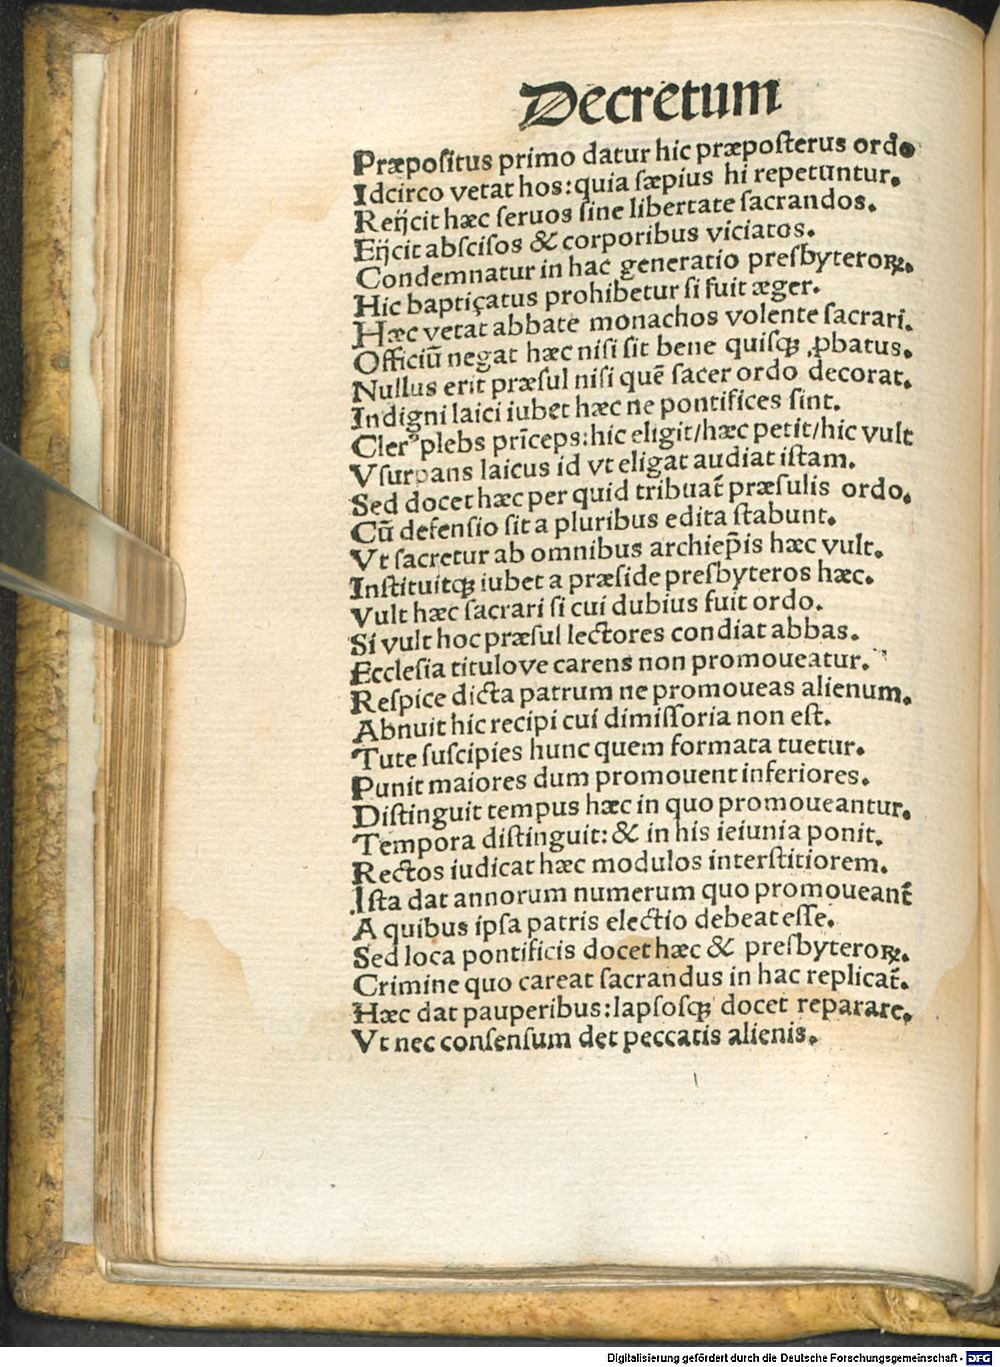 Decretum
Præpositus primo datur hic præposterus ordo
Idcirco vetat hos: quia sæpius hi repetuntur.
Reĳcit hæc ſeruos ſine libertate ſacrandos.
Eĳcit abſciſos & corporibus viciatos.
Condemnatur in hac generatio preſbyteroꝝ.
Hic baptiçatus prohibetur ſi fuit æger.
Hæc vetat abbate monachos volente ſacrari.
Officiū negat hæc niſi ſit bene quiſqꝫ ꝓbatus.
Nullus erit præſul niſi quē ſacer ordo decorat.
Indigni laici iubet hæc ne pontifices ſint.
Clerꝰ plebs prīceps: hic eligit/hæc petit/hic vult
Vſurpans laicus id vt eligat audiat iſtam.
Sed docet hæc per quid tribuat̄ præſulis ordo.
Cū defenſio ſit a pluribus edita ſtabunt.
Vt ſacretur ab omnibus archiep̄is hæc vult.
Inſtituitqꝫ iubet a præſide preſbyteros hæc.
Vult hæc ſacrari ſi cui dubius fuit ordo.
Si vult hoc præſul lectores condiat abbas.
Eccleſia titulove carens non promoueatur.
Reſpice dicta patrum ne promoueas alienum.
Abnuit hic recipi cui dimiſſoria non eſt.
Tute ſuſcipies hunc quem formata tuetur.
Punit maiores dum promouent inferiores.
Diſtinguit tempus hæc in quo promoueantur.
Tempora diſtinguit: & in his ieiunia ponit.
Rectos iudicat hæc modulos interſtitiorem.
Iſta dat annorum numerum quo promoueant̄
A quibus ipſa patris electio debeat eſſe.
Sed loca pontificis docet hæc & preſbyteroꝝ.
Crimine quo careat ſacrandus in hac replicat̄.
Hæc dat pauperibus: lapſoſqꝫ docet reparare.
Vt nec conſenſum det peccatis alienis.
Digitalisierung gefördert durch die Deutsche Forschungsgemeinschaft - DFG